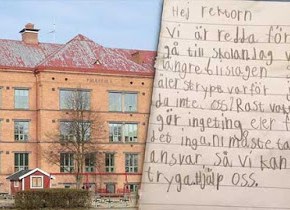 Hej rektorn
Vi är redda för
gå till skolan dag v
längre bli slagen
äler strypt varför
da inte. oss/Rast vat
gör ingeting eler f
det inga. Ni måste ta
ansvar, så vi kan
tryga. Hjälp oss.